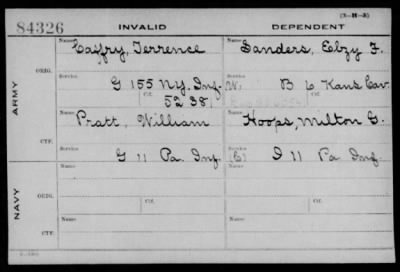 84326 INVALID DEPENDENT (3-H-5)
Name Caffry, Terrence Name Sanders, Ebzy F.
ORIG.
Service G 155 N.Y. Inf. Service W. B 6 Kans Cav.
Ctf. 52 381 Ctf.
ARMY
Name Pratt, William Name Hoops, Milton G.
CTF.
Service G 11 Pa. Inf. Service (C) I 11 Pa Inf.
Name Name
ORIG.
Service Ctf. Service Ctf.
NAVY
Name Name
CTF.
Service Service